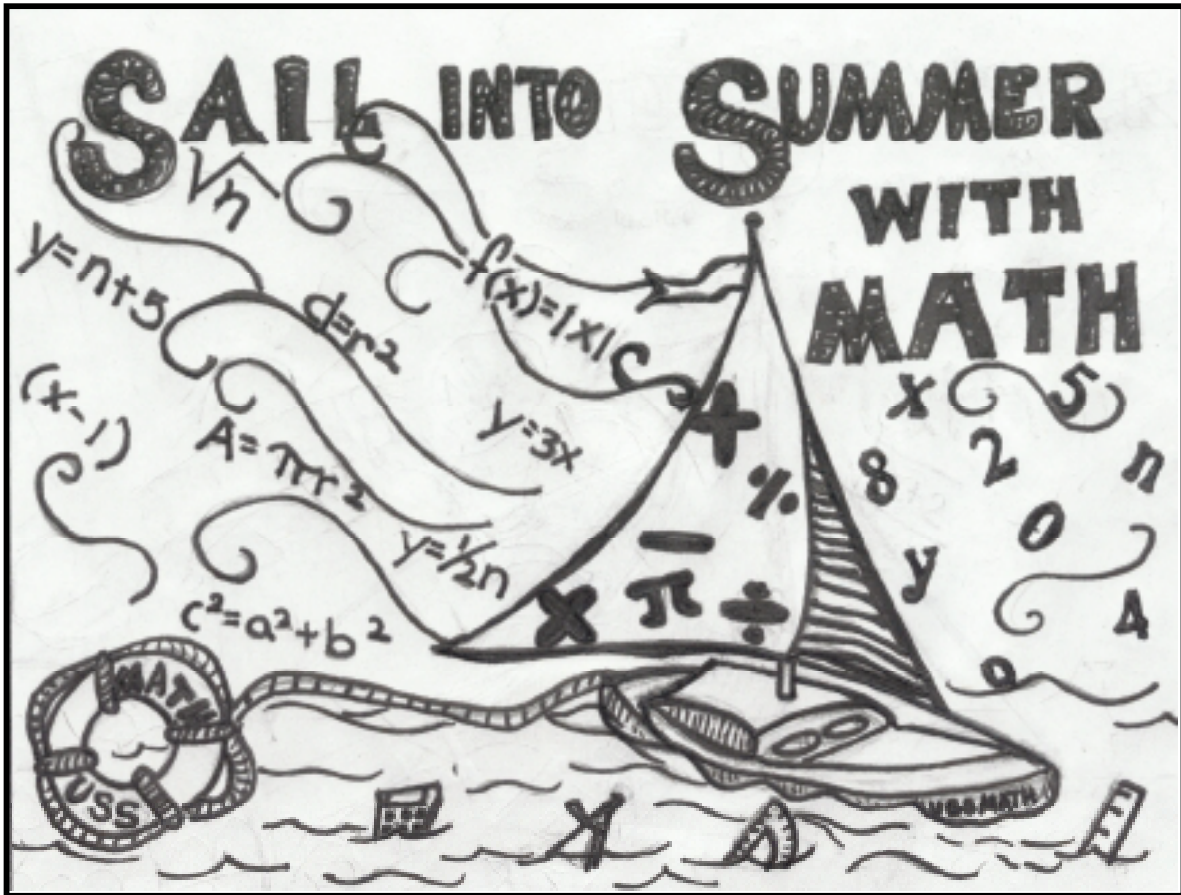 SAIL INTO SUMMER
WITH
MATH
√n
y=n+5
d=r²
f(x)=|x|
(x-1)
A=πr²
y=3x
y=½n
c²=a²+b²
+
%
−
× π ÷
x 5
8 2 n
0
y
4
MATH
USS
USS MATH